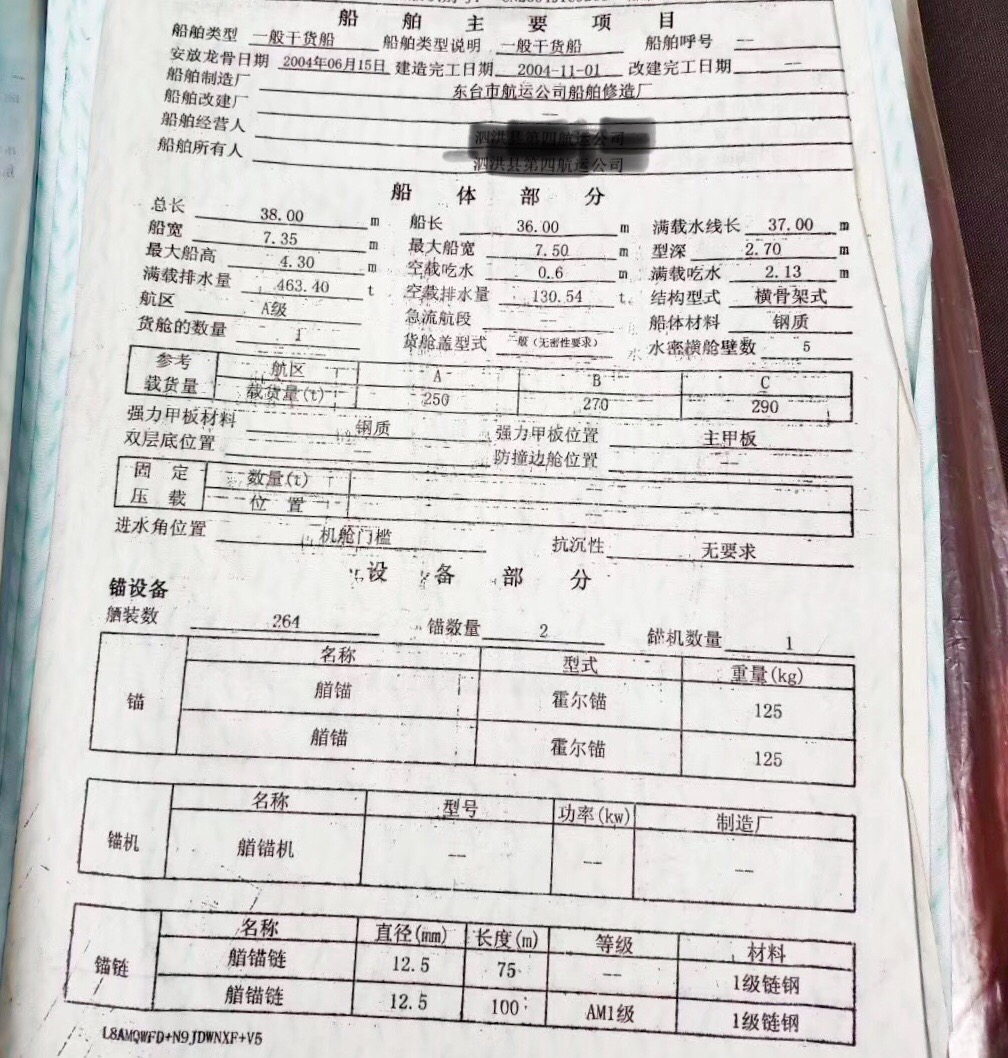 船舶主要项目
船舶类型 一般干货船 船舶类型说明 一般干货船 船舶呼号 --
安放龙骨日期 2004年06月15日 建造完工日期 2004-11-01 改建完工日期 --
船舶制造厂 东台市航运公司船舶修造厂
船舶改建厂 --
船舶经营人 泗洪县第四航运公司
船舶所有人 泗洪县第四航运公司
船体部分
总长 38.00 m 船长 36.00 m 满载水线长 37.00 m
船宽 7.35 m 最大船宽 7.50 m 型深 2.70 m
最大船高 4.30 m 空载吃水 0.6 m 满载吃水 2.13 m
满载排水量 463.40 t 空载排水量 130.54 t 结构型式 横骨架式
航区 A级 急流航段 -- 船体材料 钢质
货舱的数量 1 货舱盖型式 一般(无密性要求) 水密横舱壁数 5
参考载货量 航区 A B C
载货量(t) 250 270 290
强力甲板材料 钢质 强力甲板位置 主甲板
双层底位置 -- 防撞边舱位置 --
固定压载 数量(t) --
位置 --
进水角位置 机舱门槛 抗沉性 无要求
设备部分
锚设备
舾装数 264 锚数量 2 锚机数量 1
锚 名称 型式 重量(kg)
艏锚 霍尔锚 125
艏锚 霍尔锚 125
锚机 名称 型号 功率(kw) 制造厂
艏锚机 -- -- --
锚链 名称 直径(mm) 长度(m) 等级 材料
艏锚链 12.5 75 -- 1级链钢
艏锚链 12.5 100 AM1级 1级链钢
L8AMQWFD+N9JDWNXF+V5